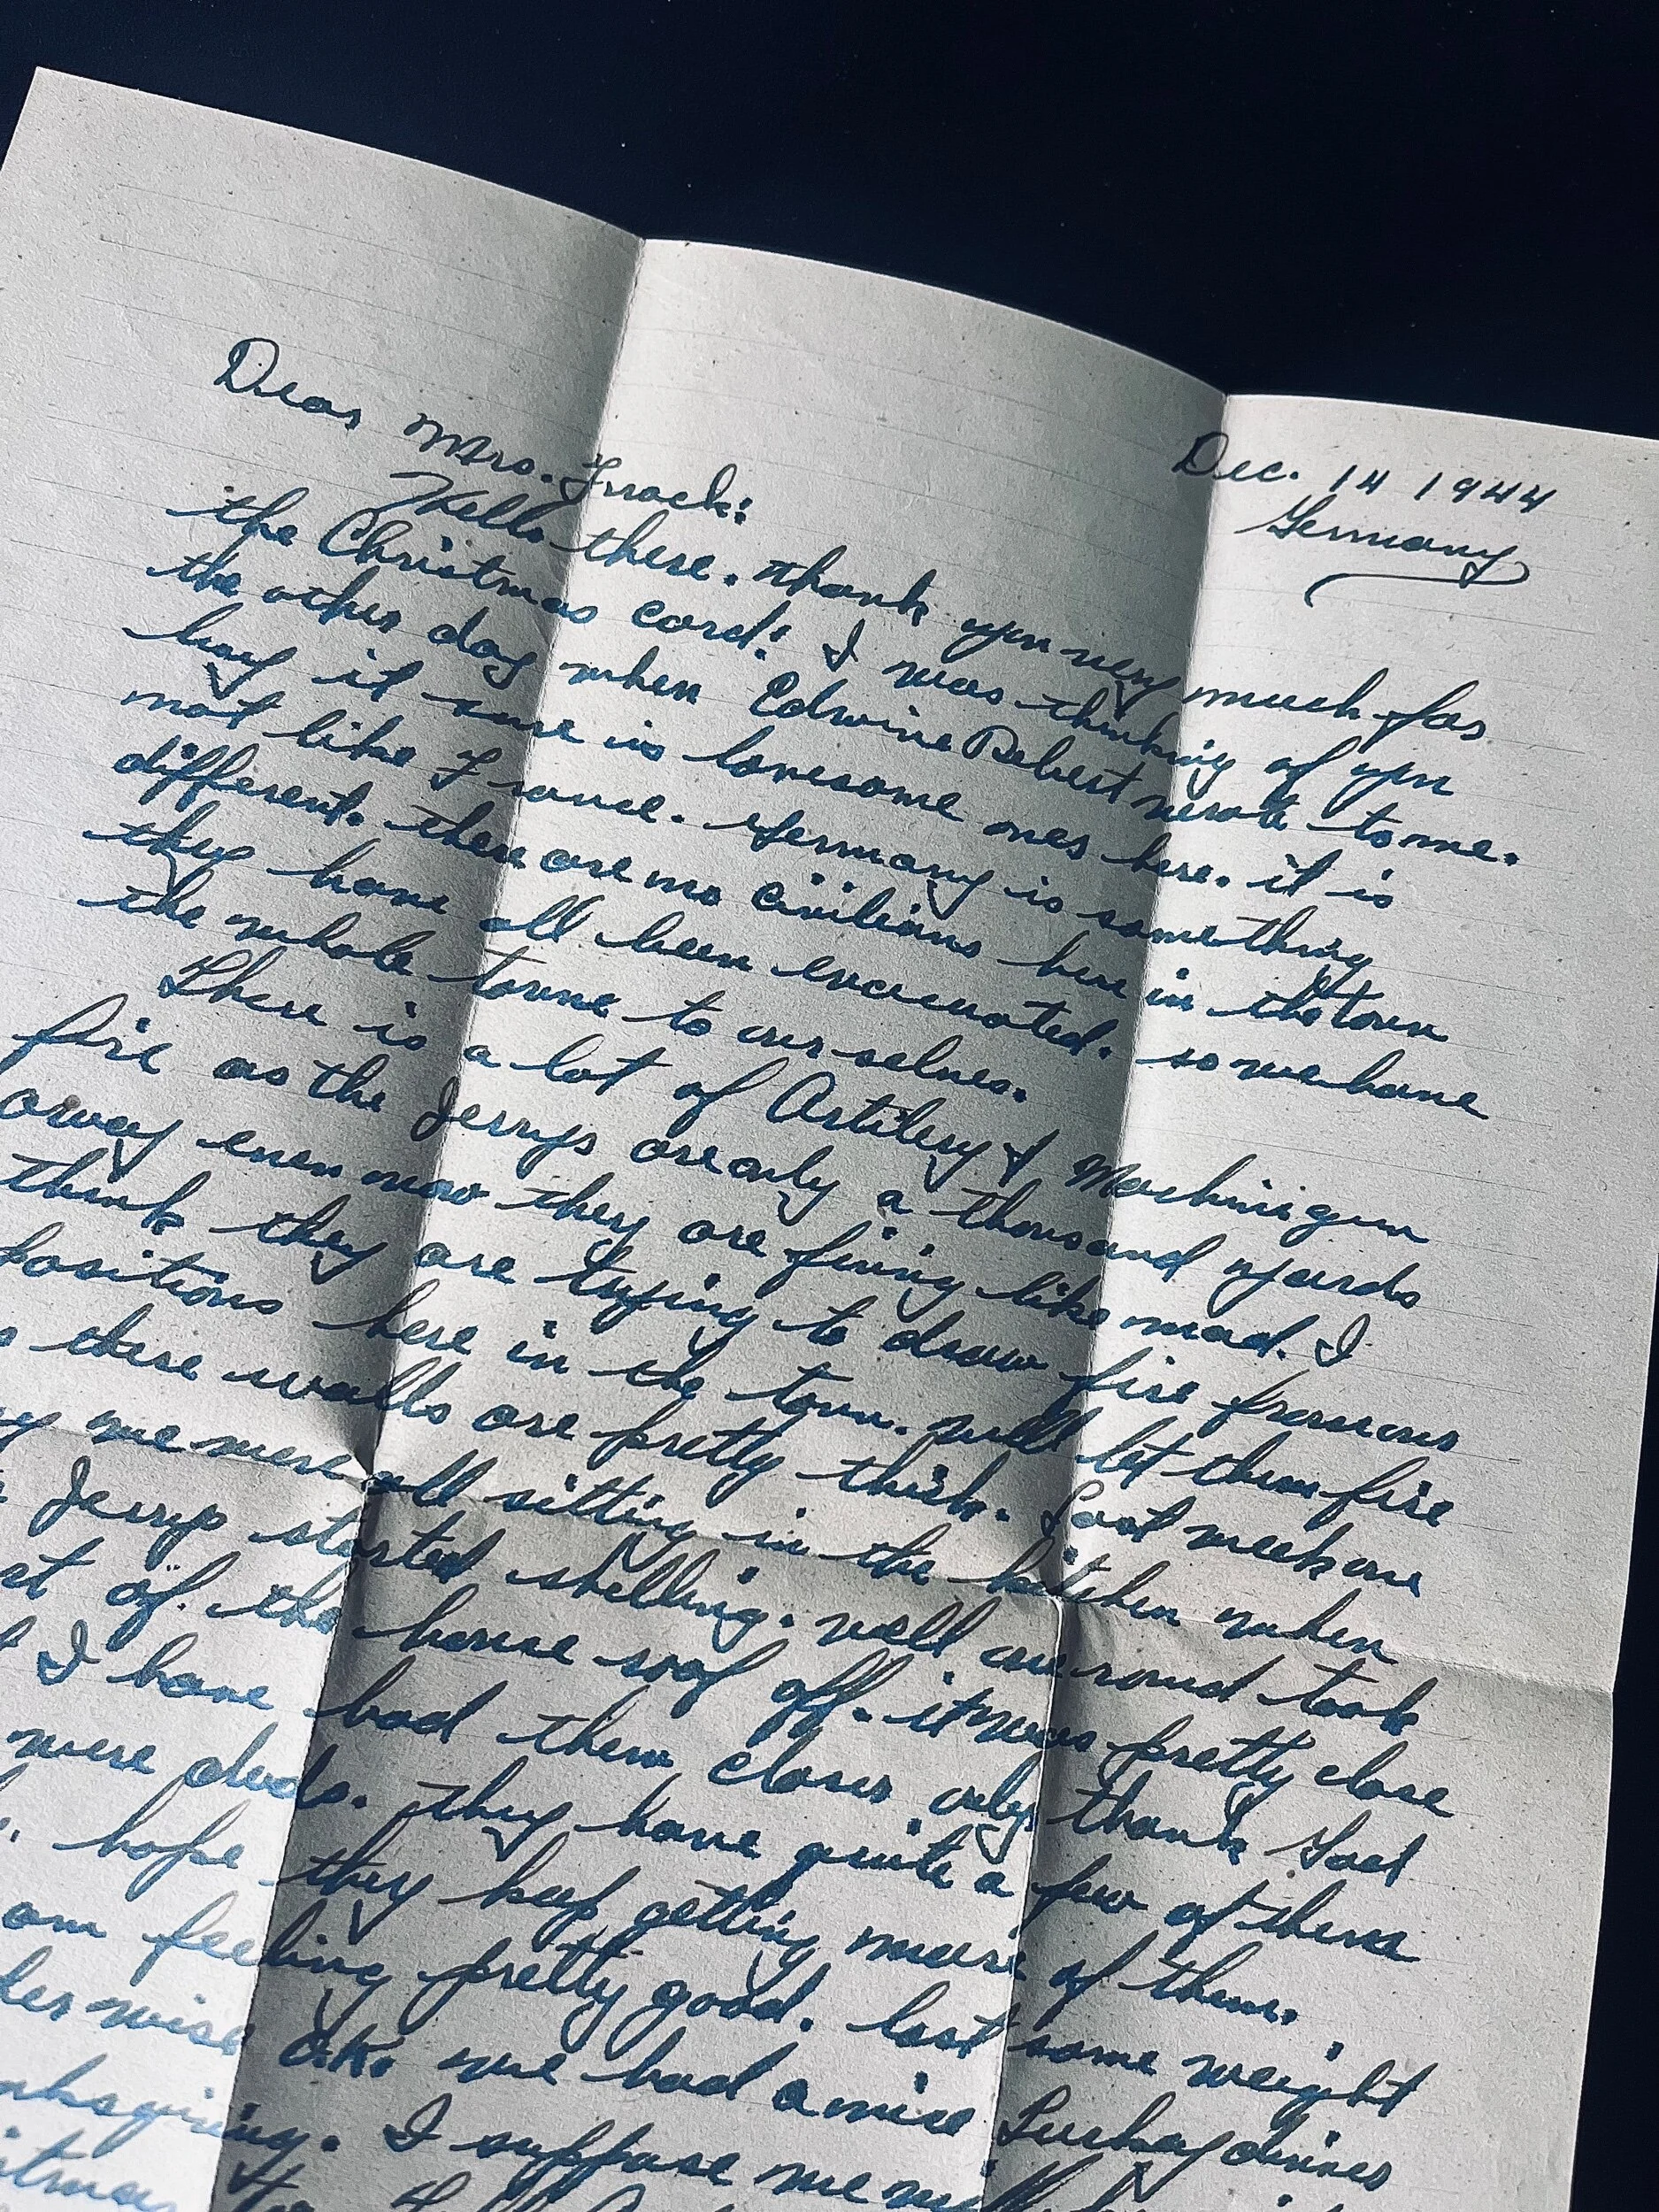 Dec. 14 1944
Germany
Dear Mrs. Frack:
Hello there. thank you very much for
the Christmas card! I was thinking of you
the other day when Edwine Rebert wrote to me.
boy it sure is lonesome over here. it is
not like France. Germany is something
different. there are no civilians here in the town
they have all been evacuated. so we have
the whole towne to our selves.
There is a lot of Artilery & Machinigun
fire as the Jerrys are only a thousand yards
away even now they are firing like mad. I
think they are trying to draw fire from our
positions here in the town. well let them fire
these walls are pretty thick. Last week one
we were all sitting in the kitchen when
Jerry started shelling. well one round took
of the house roof off. it was pretty close
I have had them closer only thank God
were duds. They have quite a few of them
hope they keep getting more of them.
am feeling pretty good. lost some weight
wise O.K. we had a nice Turkey dinner
I suppose we